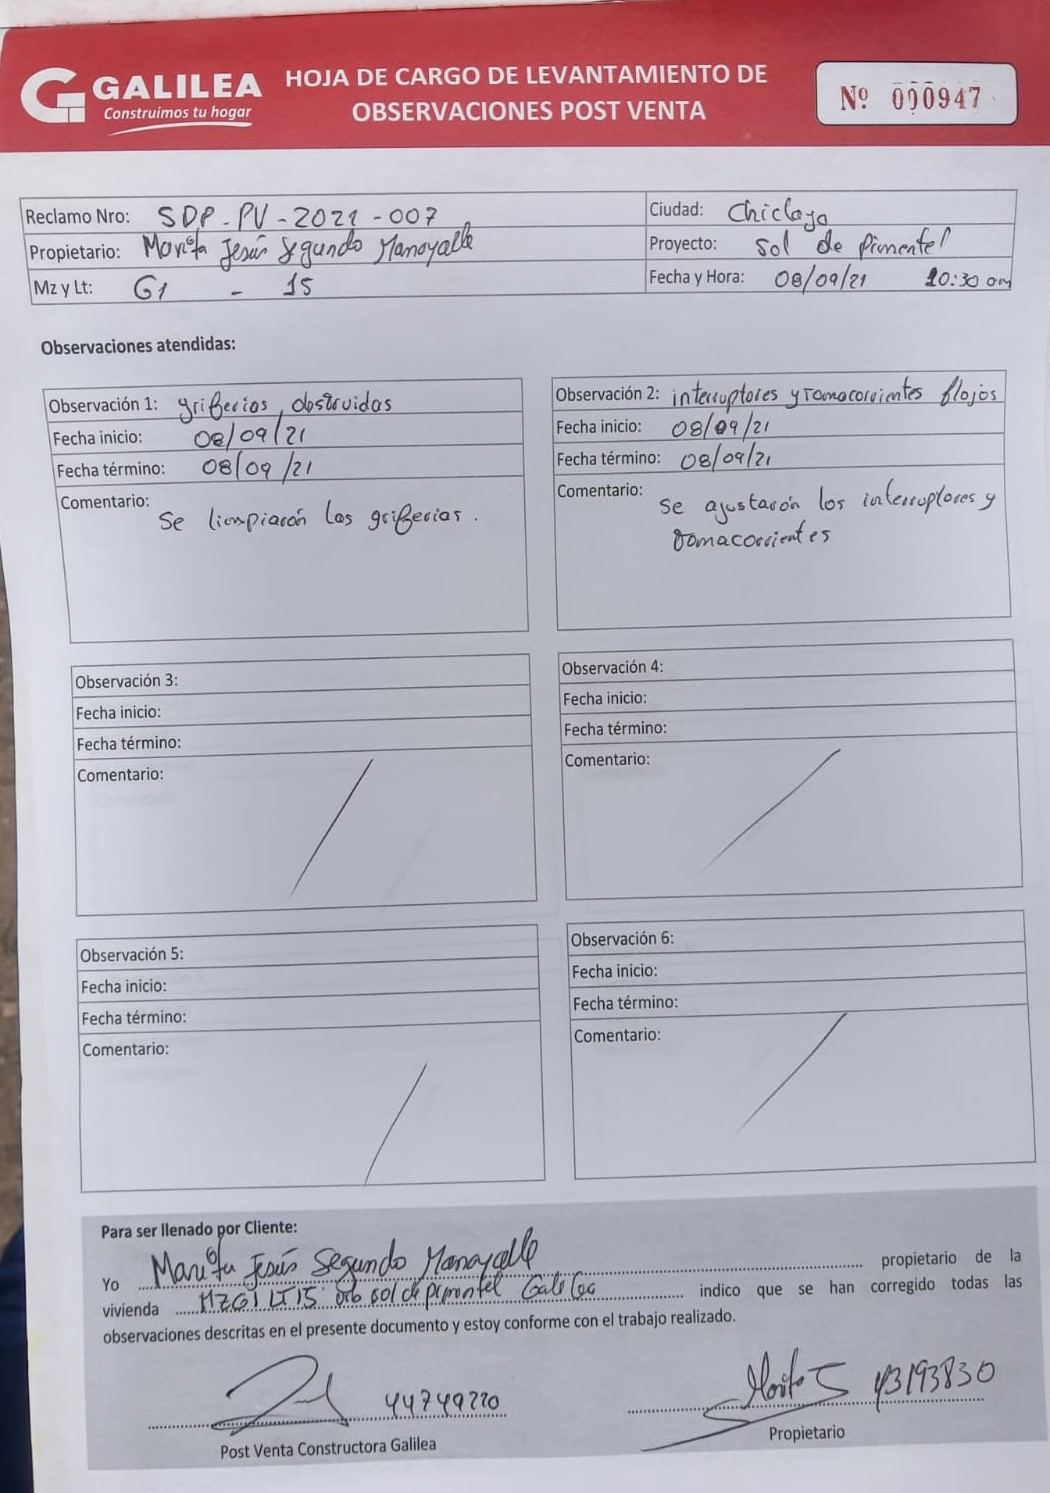 GALILEA
Construimos tu hogar
HOJA DE CARGO DE LEVANTAMIENTO DE
OBSERVACIONES POST VENTA
Nº 000947
Reclamo Nro: SDP-PV-2021-007
Ciudad: Chiclayo
Propietario: Marita Jesús Segundo Manayalle
Proyecto: Sol de Pimentel
Mz y Lt: G1 - 15
Fecha y Hora: 08/09/21 10:30 am
Observaciones atendidas:
Observación 1: griferias obstruidas
Fecha inicio: 08/09/21
Fecha término: 08/09/21
Comentario: Se limpiarón las griferias.
Observación 2: interruptores y tomacorrientes flojos
Fecha inicio: 08/09/21
Fecha término: 08/09/21
Comentario: Se ajustarón los interruptores y
tomacorrientes
Observación 3:
Fecha inicio:
Fecha término:
Comentario:
Observación 4:
Fecha inicio:
Fecha término:
Comentario:
Observación 5:
Fecha inicio:
Fecha término:
Comentario:
Observación 6:
Fecha inicio:
Fecha término:
Comentario:
Para ser llenado por Cliente:
Yo Marita Jesús Segundo Manayalle propietario de la
vivienda MZ G1 LT 15 sol de pimentel Galilea indico que se han corregido todas las
observaciones descritas en el presente documento y estoy conforme con el trabajo realizado.
44749220
Marita J 43193830
Post Venta Constructora Galilea
Propietario